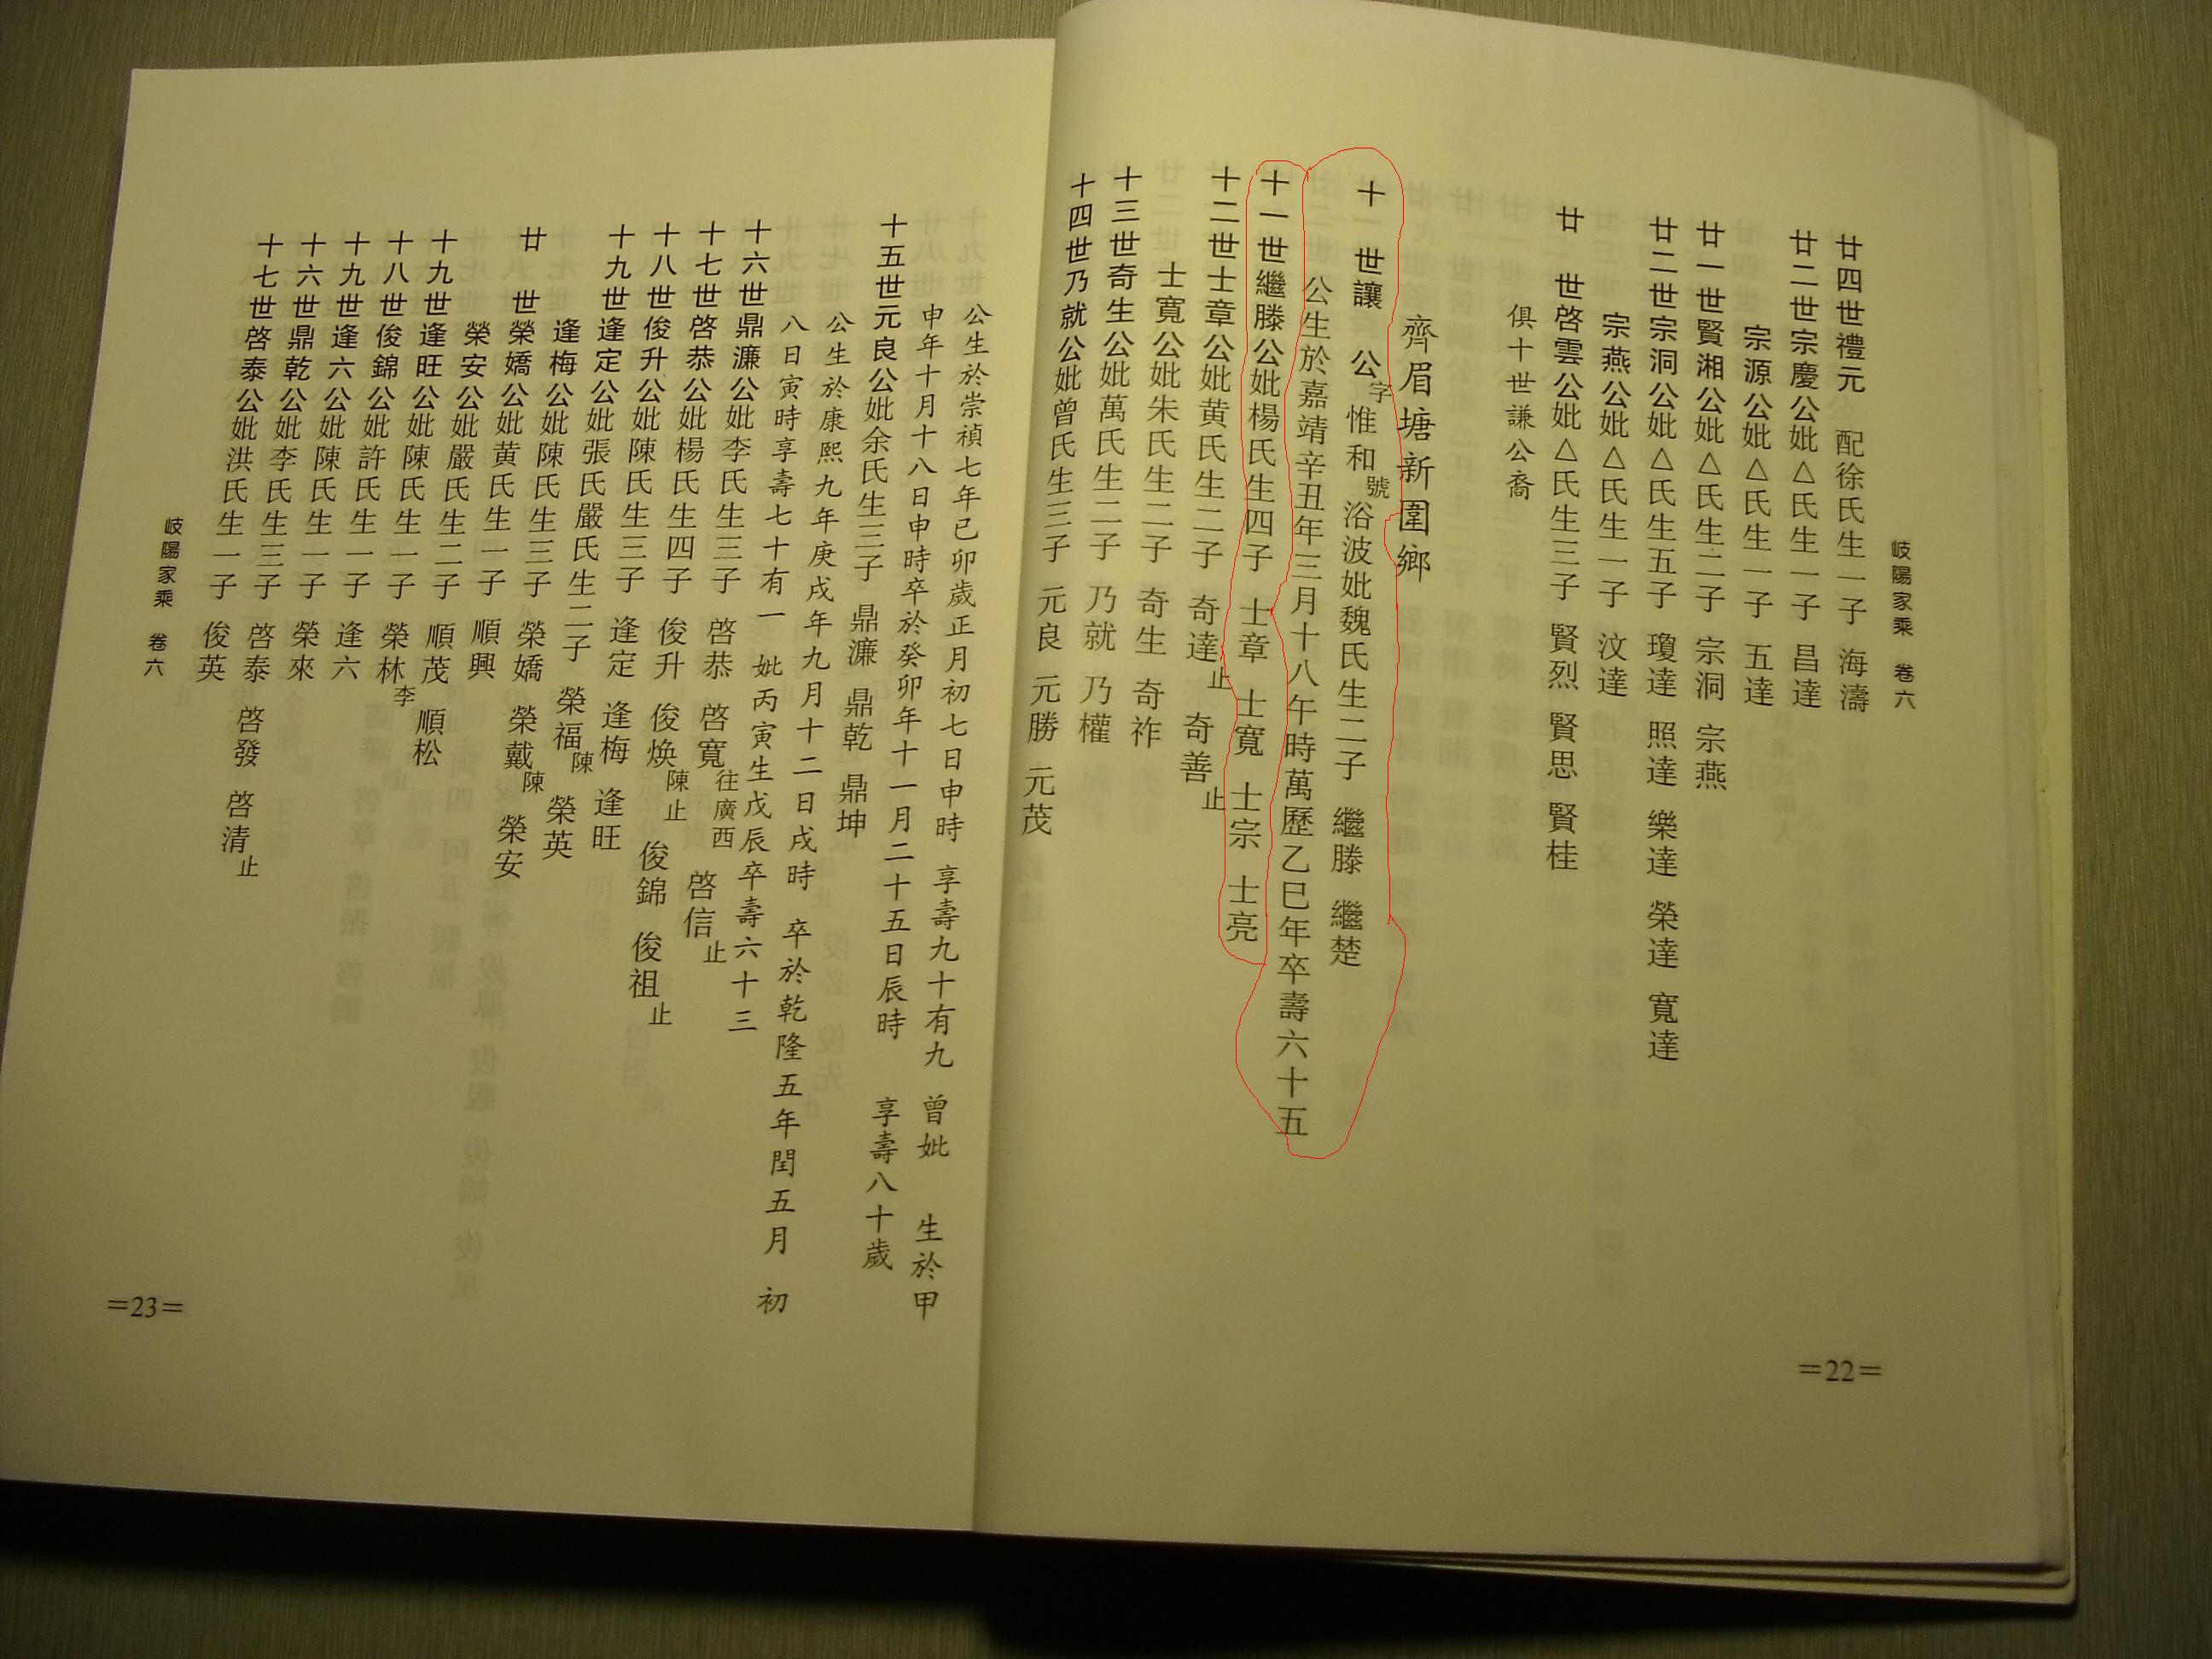 岐陽家乘 卷六
廿四世禮元 配徐氏生一子 海濤
廿二世宗慶公妣△氏生一子 昌達
宗源公妣△氏生一子 五達
廿一世賢湘公妣△氏生二子 宗洞 宗燕
廿二世宗洞公妣△氏生五子 瓊達 照達 樂達 榮達 寬達
宗燕公妣△氏生一子 汶達
廿 世啓雲公妣△氏生三子 賢烈 賢思 賢桂
俱十世謙公裔
齊眉塘新圍鄉
十 世讓 公字惟和號浴波妣魏氏生二子 繼滕 繼楚
公生於嘉靖辛丑年三月十八午時萬歷乙巳年卒壽六十五
十一世繼滕公妣楊氏生四子 士章 士寬 士宗 士亮
十二世士章公妣黄氏生二子 奇達止 奇善止
士寬公妣朱氏生二子 奇生 奇祚
十三世奇生公妣萬氏生二子 乃就 乃權
十四世乃就公妣曾氏生三子 元良 元勝 元茂
=22=
公生於崇禎七年已卯歲正月初七日申時 享壽九十有九 曾妣 生於甲
申年十月十八日申時卒於癸卯年十一月二十五日辰時 享壽八十歲
十五世元良公妣余氏生三子 鼎濂 鼎乾 鼎坤
公生於康熙九年庚戌年九月十二日戌時 卒於乾隆五年閏五月 初
八日寅時享壽七十有一 妣丙寅生戊辰卒壽六十三
十六世鼎濂公妣李氏生三子 啓恭 啓寬往廣西 啓信止
十七世啓恭公妣楊氏生四子 俊升 俊焕陳止 俊錦 俊祖止
十八世俊升公妣陳氏生三子 逢定 逢梅 逢旺
十九世逢定公妣張氏嚴氏生二子 榮福陳 榮英
逢梅公妣陳氏生三子 榮嬌 榮戴陳 榮安
廿 世榮嬌公妣黄氏生一子 順興
榮安公妣嚴氏生二子 順茂 順松
十九世逢旺公妣陳氏生一子 榮林李
十八世俊錦公妣許氏生一子 逢六
十九世逢六公妣陳氏生一子 榮來
十六世鼎乾公妣李氏生三子 啓泰 啓發 啓清止
十七世啓泰公妣洪氏生一子 俊英
岐陽家乘 卷六
=23=